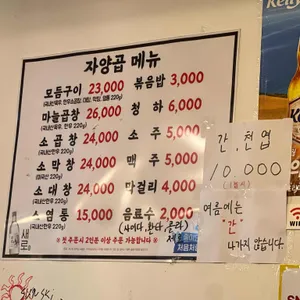 자양곱 메뉴
모듬구이 23,000 볶음밥 3,000
마늘곱창 26,000 청하 6,000
(국내산육우, 한우 220g)
소곱창 24,000 소주 5,000
(국내산육우, 한우 220g)
소막창 24,000 맥주 5,000
소대창 24,000 막걸리 4,000
(국내산육우, 한우 220g)
소염통 15,000 음료수 2,000
(사이다, 환타, 콜라)
※ 첫 주문시 2인분 이상 주문 가능합니다 ※
새로
간, 천엽
10,000
여름에는
"간"
나가지 않습니다.
WI